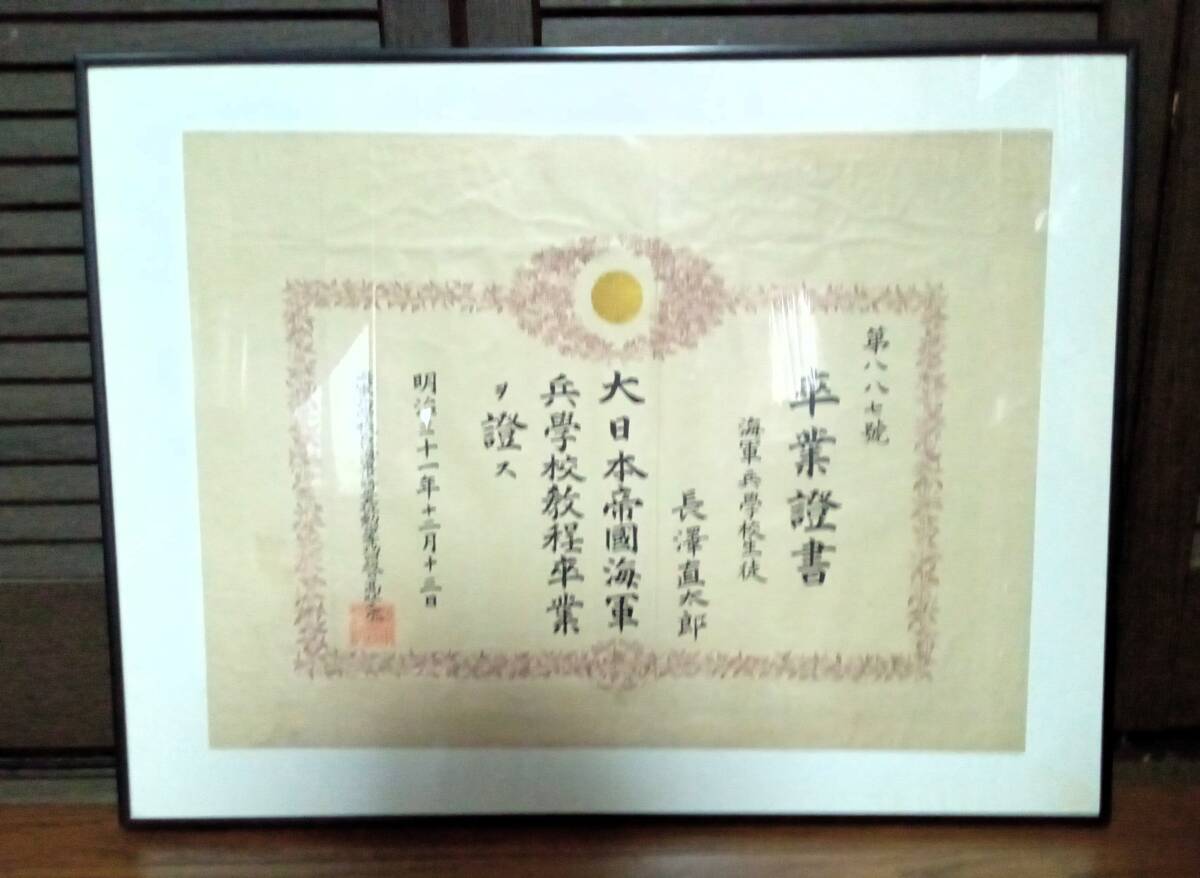 第八八七號
卒業證書
海軍兵學校生徒
長澤直太郎
大日本帝國海軍
兵學校教程卒業
ヲ證ス
明治三十一年十二月十三日